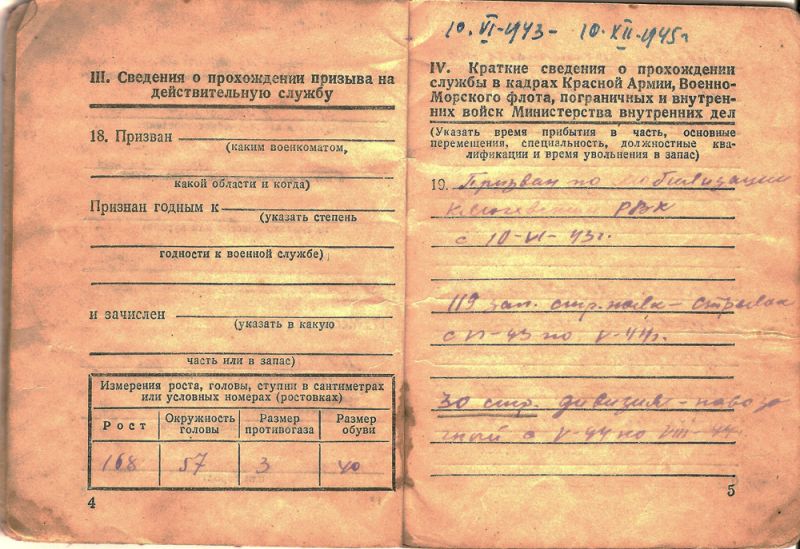 III. Сведения о прохождении призыва на
действительную службу
18. Призван
(каким военкоматом,
какой области и когда)
Признан годным к
(указать степень
годности к военной службе)
и зачислен
(указать в какую
часть или в запас)
Измерения роста, головы, ступни в сантиметрах
или условных номерах (ростовках)
Рост Окружность головы Размер противогаза Размер обуви
168 57 3 40
4
10.VI-1943- 10.XII-1945г
IV. Краткие сведения о прохождении
службы в кадрах Красной Армии, Военно-
Морского флота, пограничных и внутрен-
них войск Министерства внутренних дел
(Указать время прибытия в часть, основные
перемещения, специальность, должностные ква-
лификации и время увольнения в запас)
19. Призван по мобилизации
РВК
с 10-VI-43г.
119 зап. стр. полк - стрелок
с VI-43 по V-44г.
30 стр. дивизия - повозо
чный с V-44 по VIII-44
5